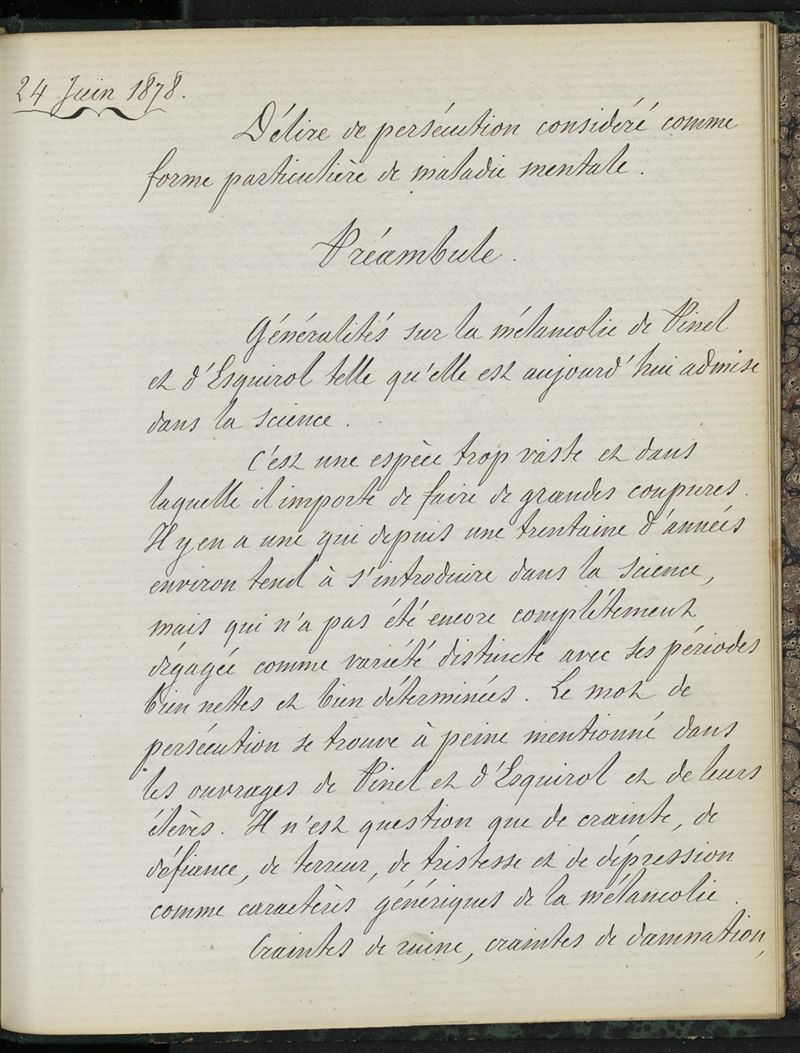 24 Juin 1878.
Délire de persécution considéré comme
forme particulière de maladie mentale.
Préambule.
Généralités sur la mélancolie de Pinel
et d'Esquirol telle qu'elle est aujourd'hui admise
dans la science.
C'est une espèce trop vaste et dans
laquelle il importe de faire de grandes coupures.
Il y en a une qui depuis une trentaine d'années
environ tend à s'introduire dans la science,
mais qui n'a pas été encore complétement
dégagée comme variété distincte avec ses périodes
bien nettes et bien déterminées. Le mot de
persécution se trouve à peine mentionné dans
les ouvrages de Pinel et d'Esquirol et de leurs
élèves. Il n'est question que de crainte, de
défiance, de terreur, de tristesse et de dépression
comme caractères génériques de la mélancolie.
Craintes de ruine, craintes de damnation,